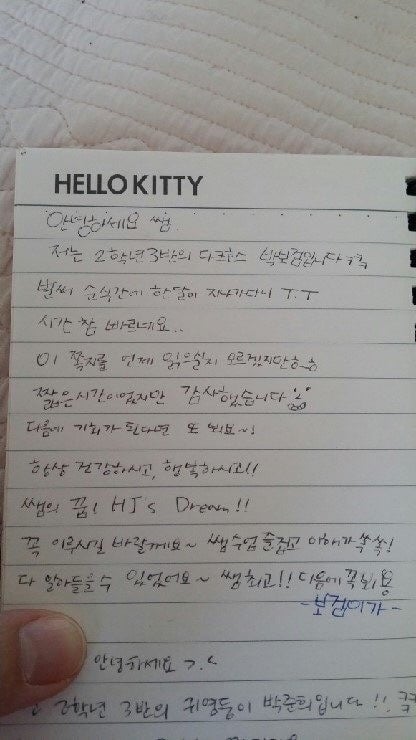 HELLO KITTY
안녕하세요 쌤.
저는 2학년 3반의 다크호스 박보검입니다 ㅋㅋ
벌써 순식간에 한달이 지나가다니 T.T
시간 참 빠르네요..
이 쪽지를 언제 읽으실지 모르겠지만ㅎㅎ
짧은시간이었지만 감사했습니다
다음에 기회가 된다면 또 뵈요~!
항상 건강하시고, 행복하시고!!
쌤의 꿈! HJ's Dream!!
꼭 이루시길 바랄께요~ 쌤수업 즐겁고 이해가 쏙쏙!
다 알아들을수 있었어요~ 쌤최고!! 다음에 꼭봬용
-보검이가-
안녕하세요 ㄱ.ㄴ
2학년 3반의 귀염둥이 박준희입니다!! 큭큭